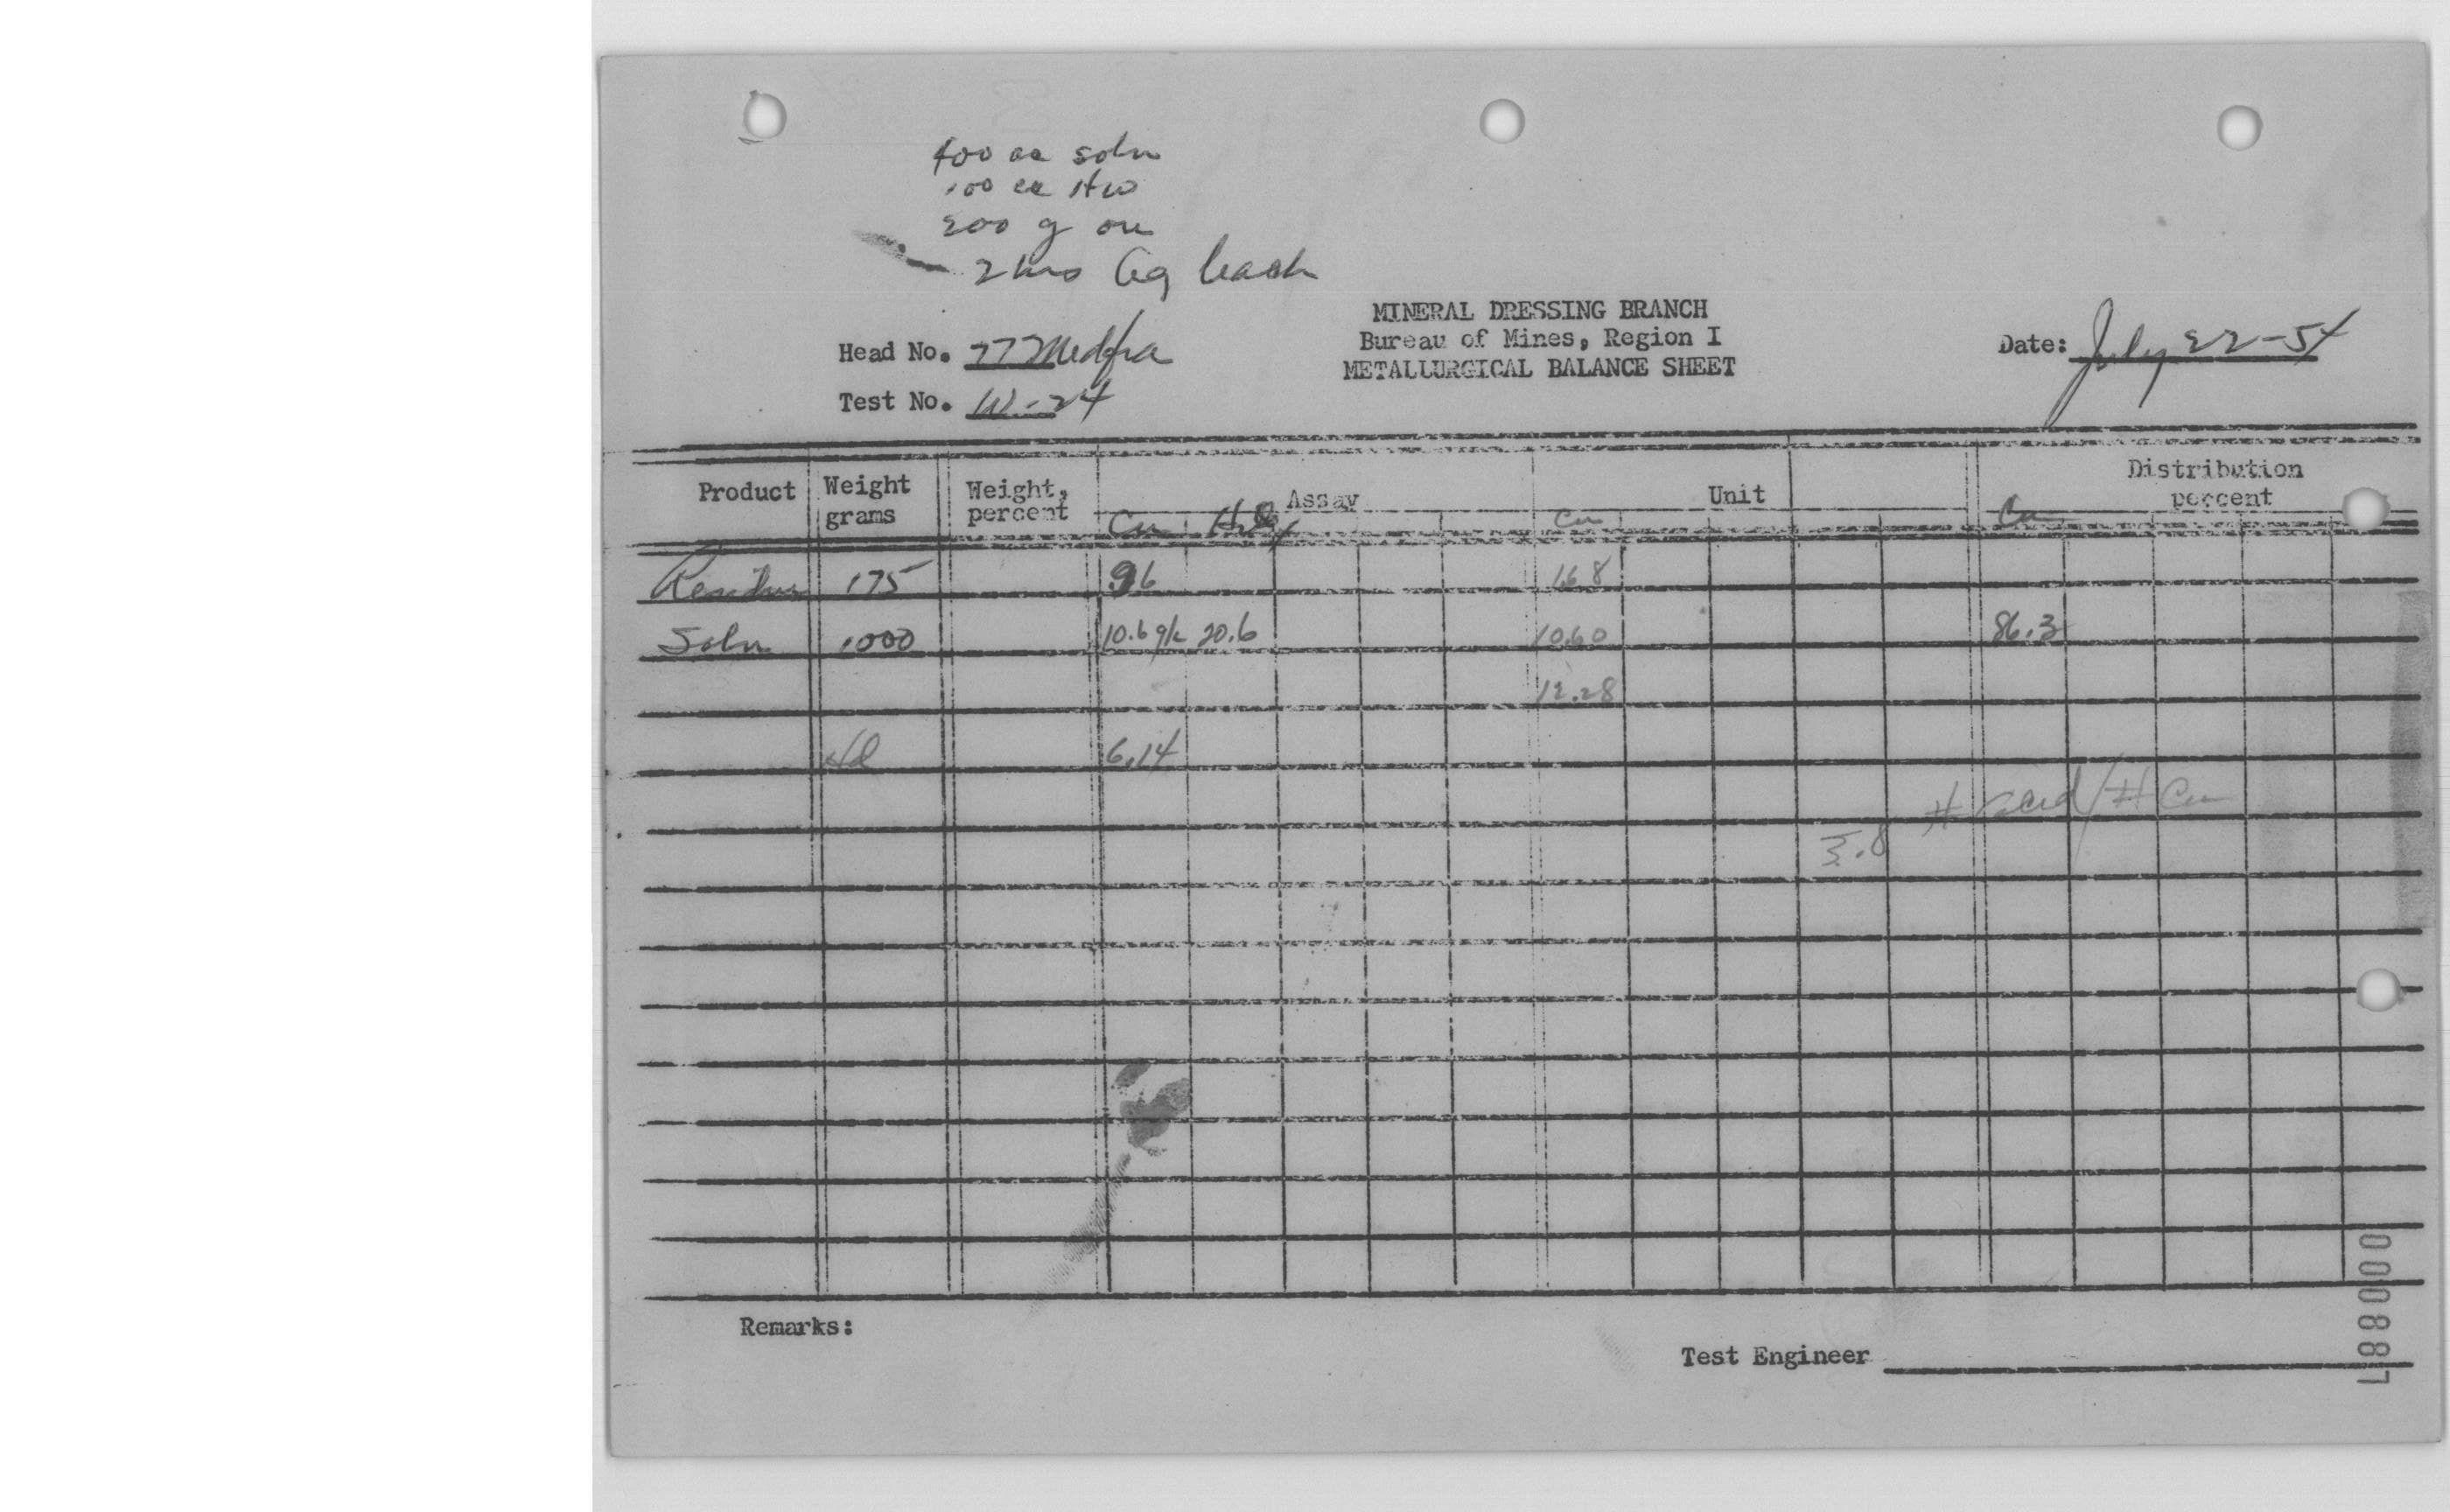 400 cc soln
100 cc HW
200 g ore
2 hrs Ag leach
MINERAL DRESSING BRANCH
Bureau of Mines, Region I
METALLURGICAL BALANCE SHEET
Head No. 77 Medfra
Test No. W-24
Date: July 22-54
Product Weight grams Weight, percent Assay Unit Distribution percent
Cu Cu Cu
Residue 175 .96 1.68
Soln 1000 10.6 g/L 20.6 10.60 86.3
12.28
Hd 6.14
3.8 # acid/# Cu
Remarks:
Test Engineer
000887